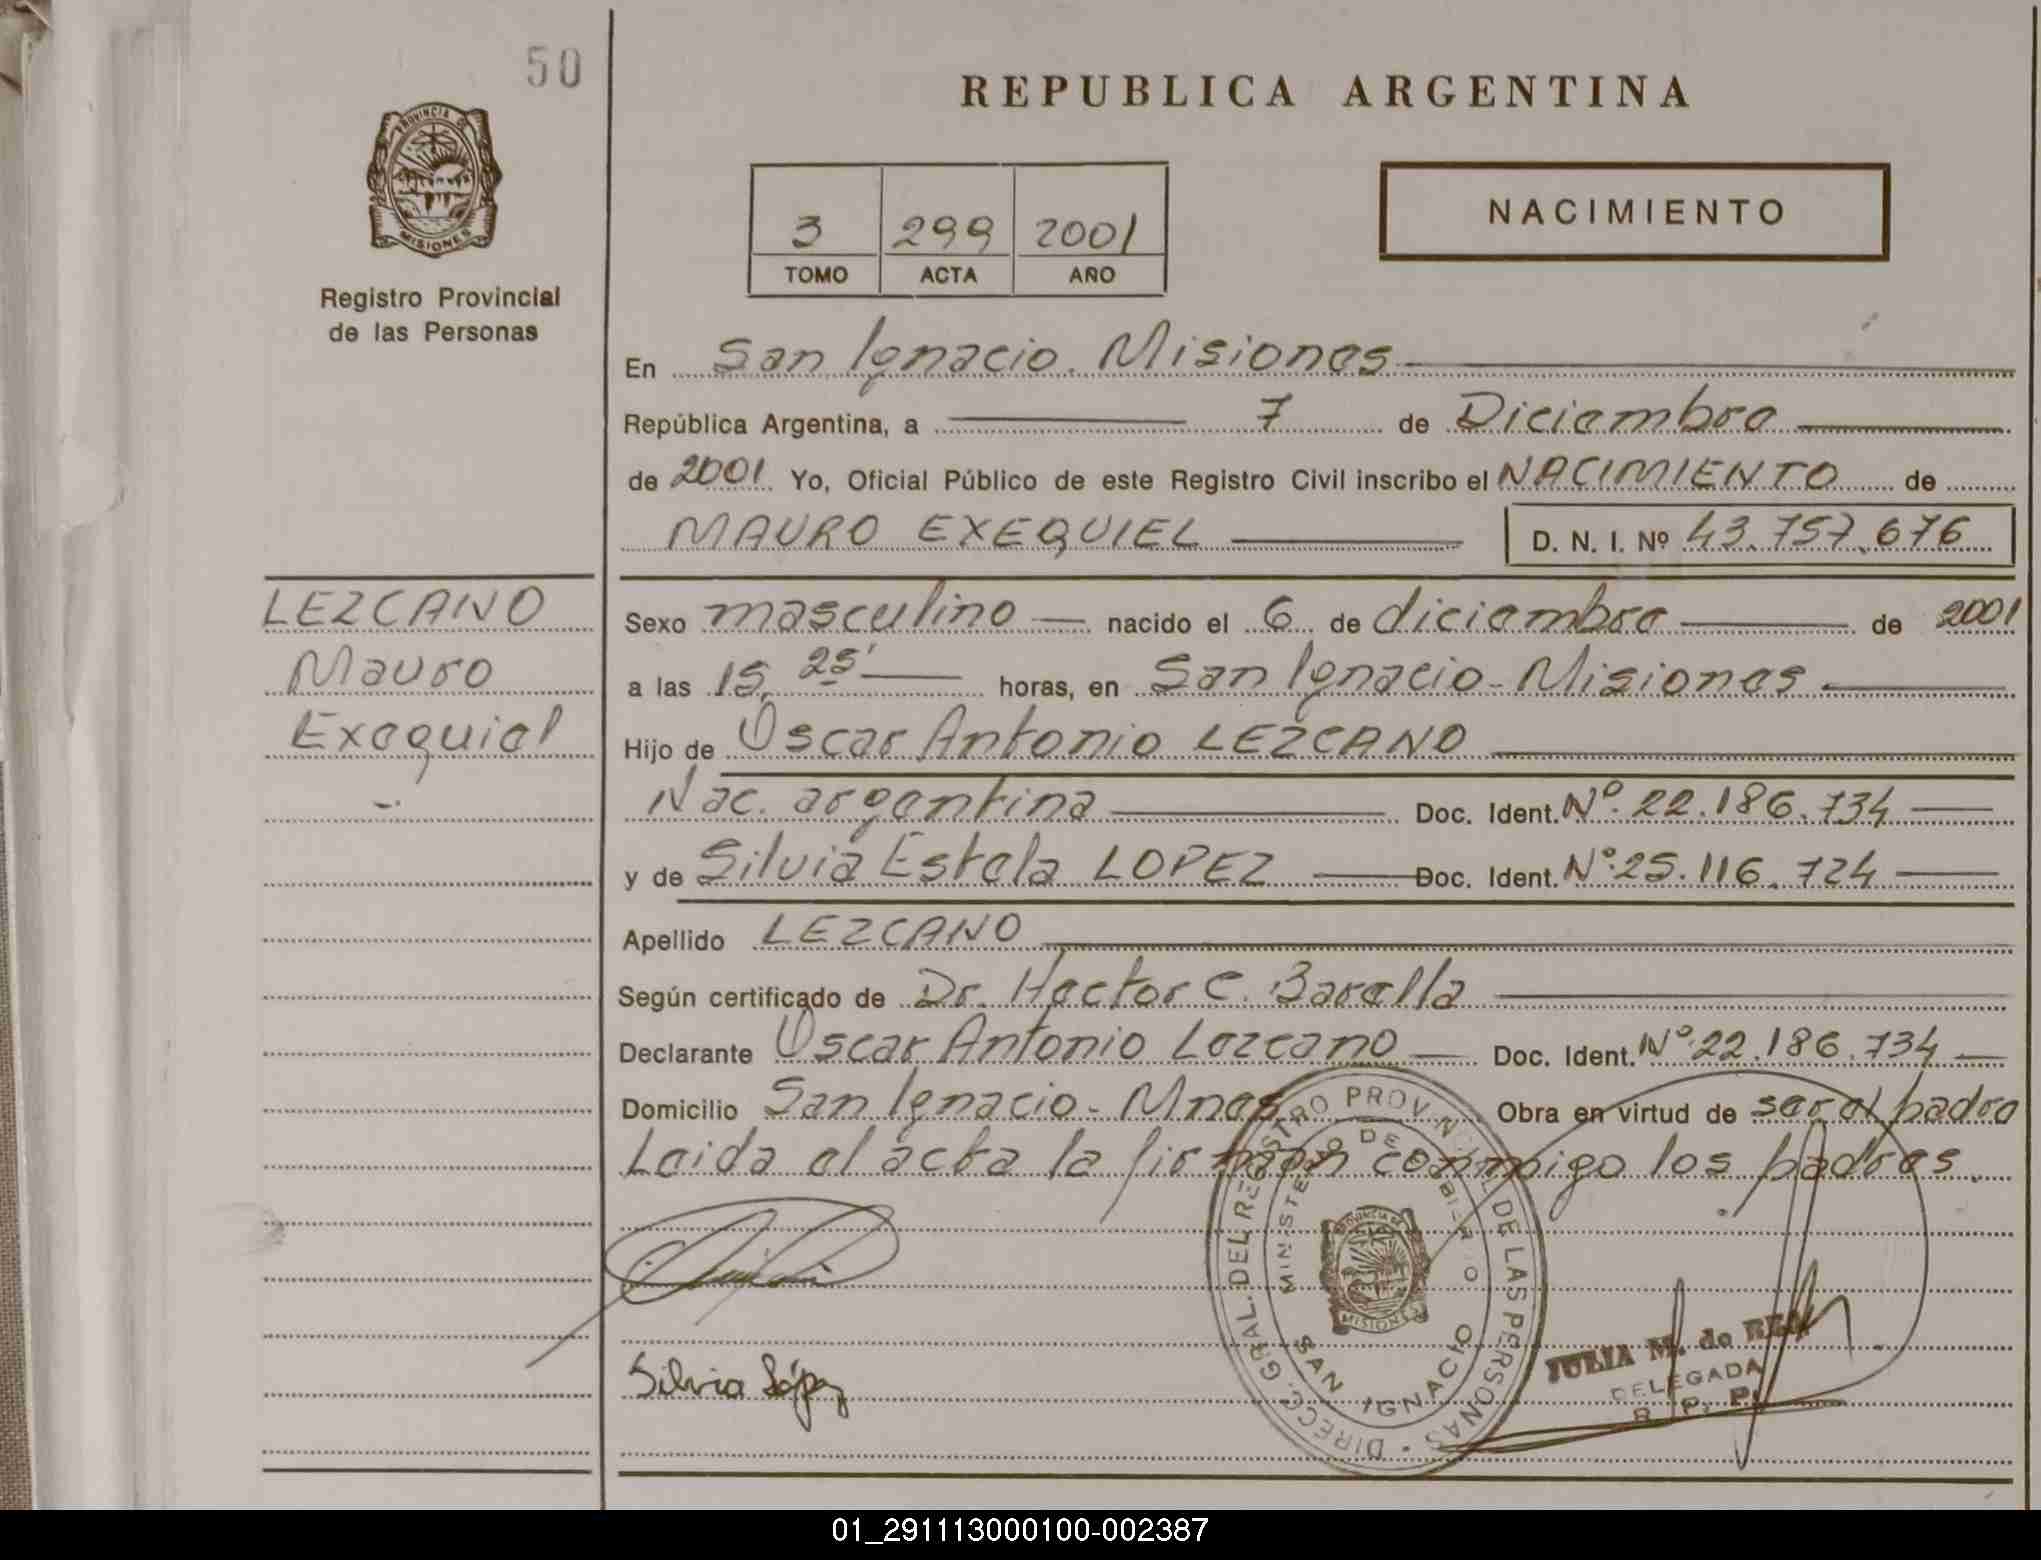 50
REPUBLICA ARGENTINA
PROVINCIA DE MISIONES
Registro Provincial
de las Personas
3 299 2001
TOMO ACTA AÑO
NACIMIENTO
En San Ignacio. Misiones
República Argentina, a 7 de Diciembre
de 2001 Yo, Oficial Público de este Registro Civil inscribo el NACIMIENTO de
MAURO EXEQUIEL D. N. I. Nº 43.757.676
LEZCANO
Mauro
Exequiel
Sexo masculino nacido el 6 de diciembre de 2001
a las 15, 25' horas, en San Ignacio - Misiones
Hijo de Oscar Antonio LEZCANO
Nac. argentina Doc. Ident. Nº. 22.186.734
y de Silvia Estela LOPEZ Doc. Ident. Nº. 25.116.724
Apellido LEZCANO
Según certificado de Dr. Hector C. Barella
Declarante Oscar Antonio Lezcano Doc. Ident. Nº 22.186.734
Domicilio San Ignacio - Mnes Obra en virtud de ser el padre
Leida el acta la firman conmigo los padres.
DIRECC. GRAL. DEL REGISTRO PROVINCIAL DE LAS PERSONAS
MINISTERIO DE GOBIERNO
PROVINCIA DE MISIONES
SAN IGNACIO
Silvia López
JULIA M. de
DELEGADA
R. P. P.
01_291113000100-002387